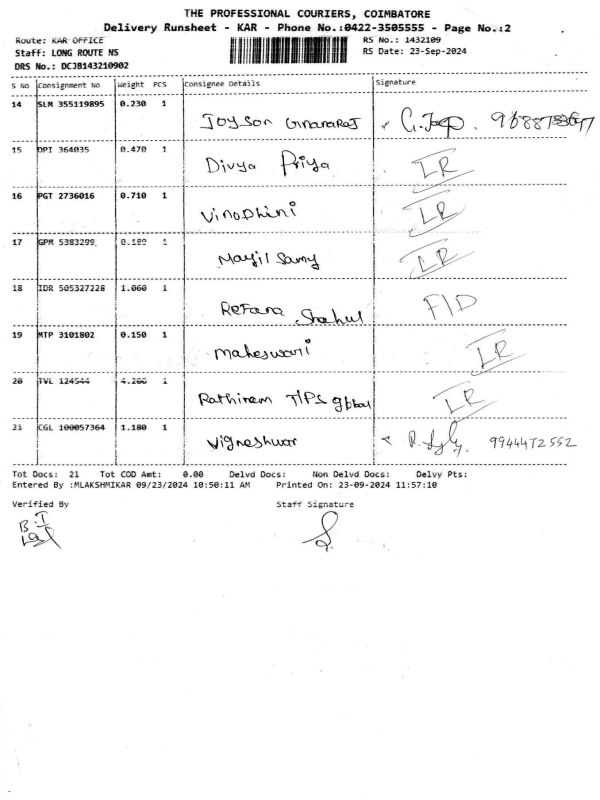 THE PROFESSIONAL COURIERS, COIMBATORE
Delivery Runsheet - KAR - Phone No.:0422-3505555 - Page No.:2
Route: KAR OFFICE RS No.: 1432109
Staff: LONG ROUTE NS RS Date: 23-Sep-2024
DRS No.: DCJB143210902
S No Consignment No Weight PCS Consignee Details Signature
14 SLM 355119895 0.230 1 Joyson Gnanaraj
15 DPI 364035 0.470 1 Divya Priya LR
16 PGT 2736016 0.710 1 Vinodhini LR
17 GPM 5383299 0.180 1 Mayil Samy LR
18 IDR 505327228 1.060 1 Refana Shahul FID
19 MTP 3101802 0.150 1 Maheswari LR
20 TVL 124544 4.200 1 Rathinam TIPS LR
21 CGL 100057364 1.180 1 Vigneshwar 9944472552
Tot Docs: 21 Tot COD Amt: 0.00 Delvd Docs: Non Delvd Docs: Delvy Pts:
Entered By :MLAKSHMIKAR 09/23/2024 10:50:11 AM Printed On: 23-09-2024 11:57:10
Verified By Staff Signature